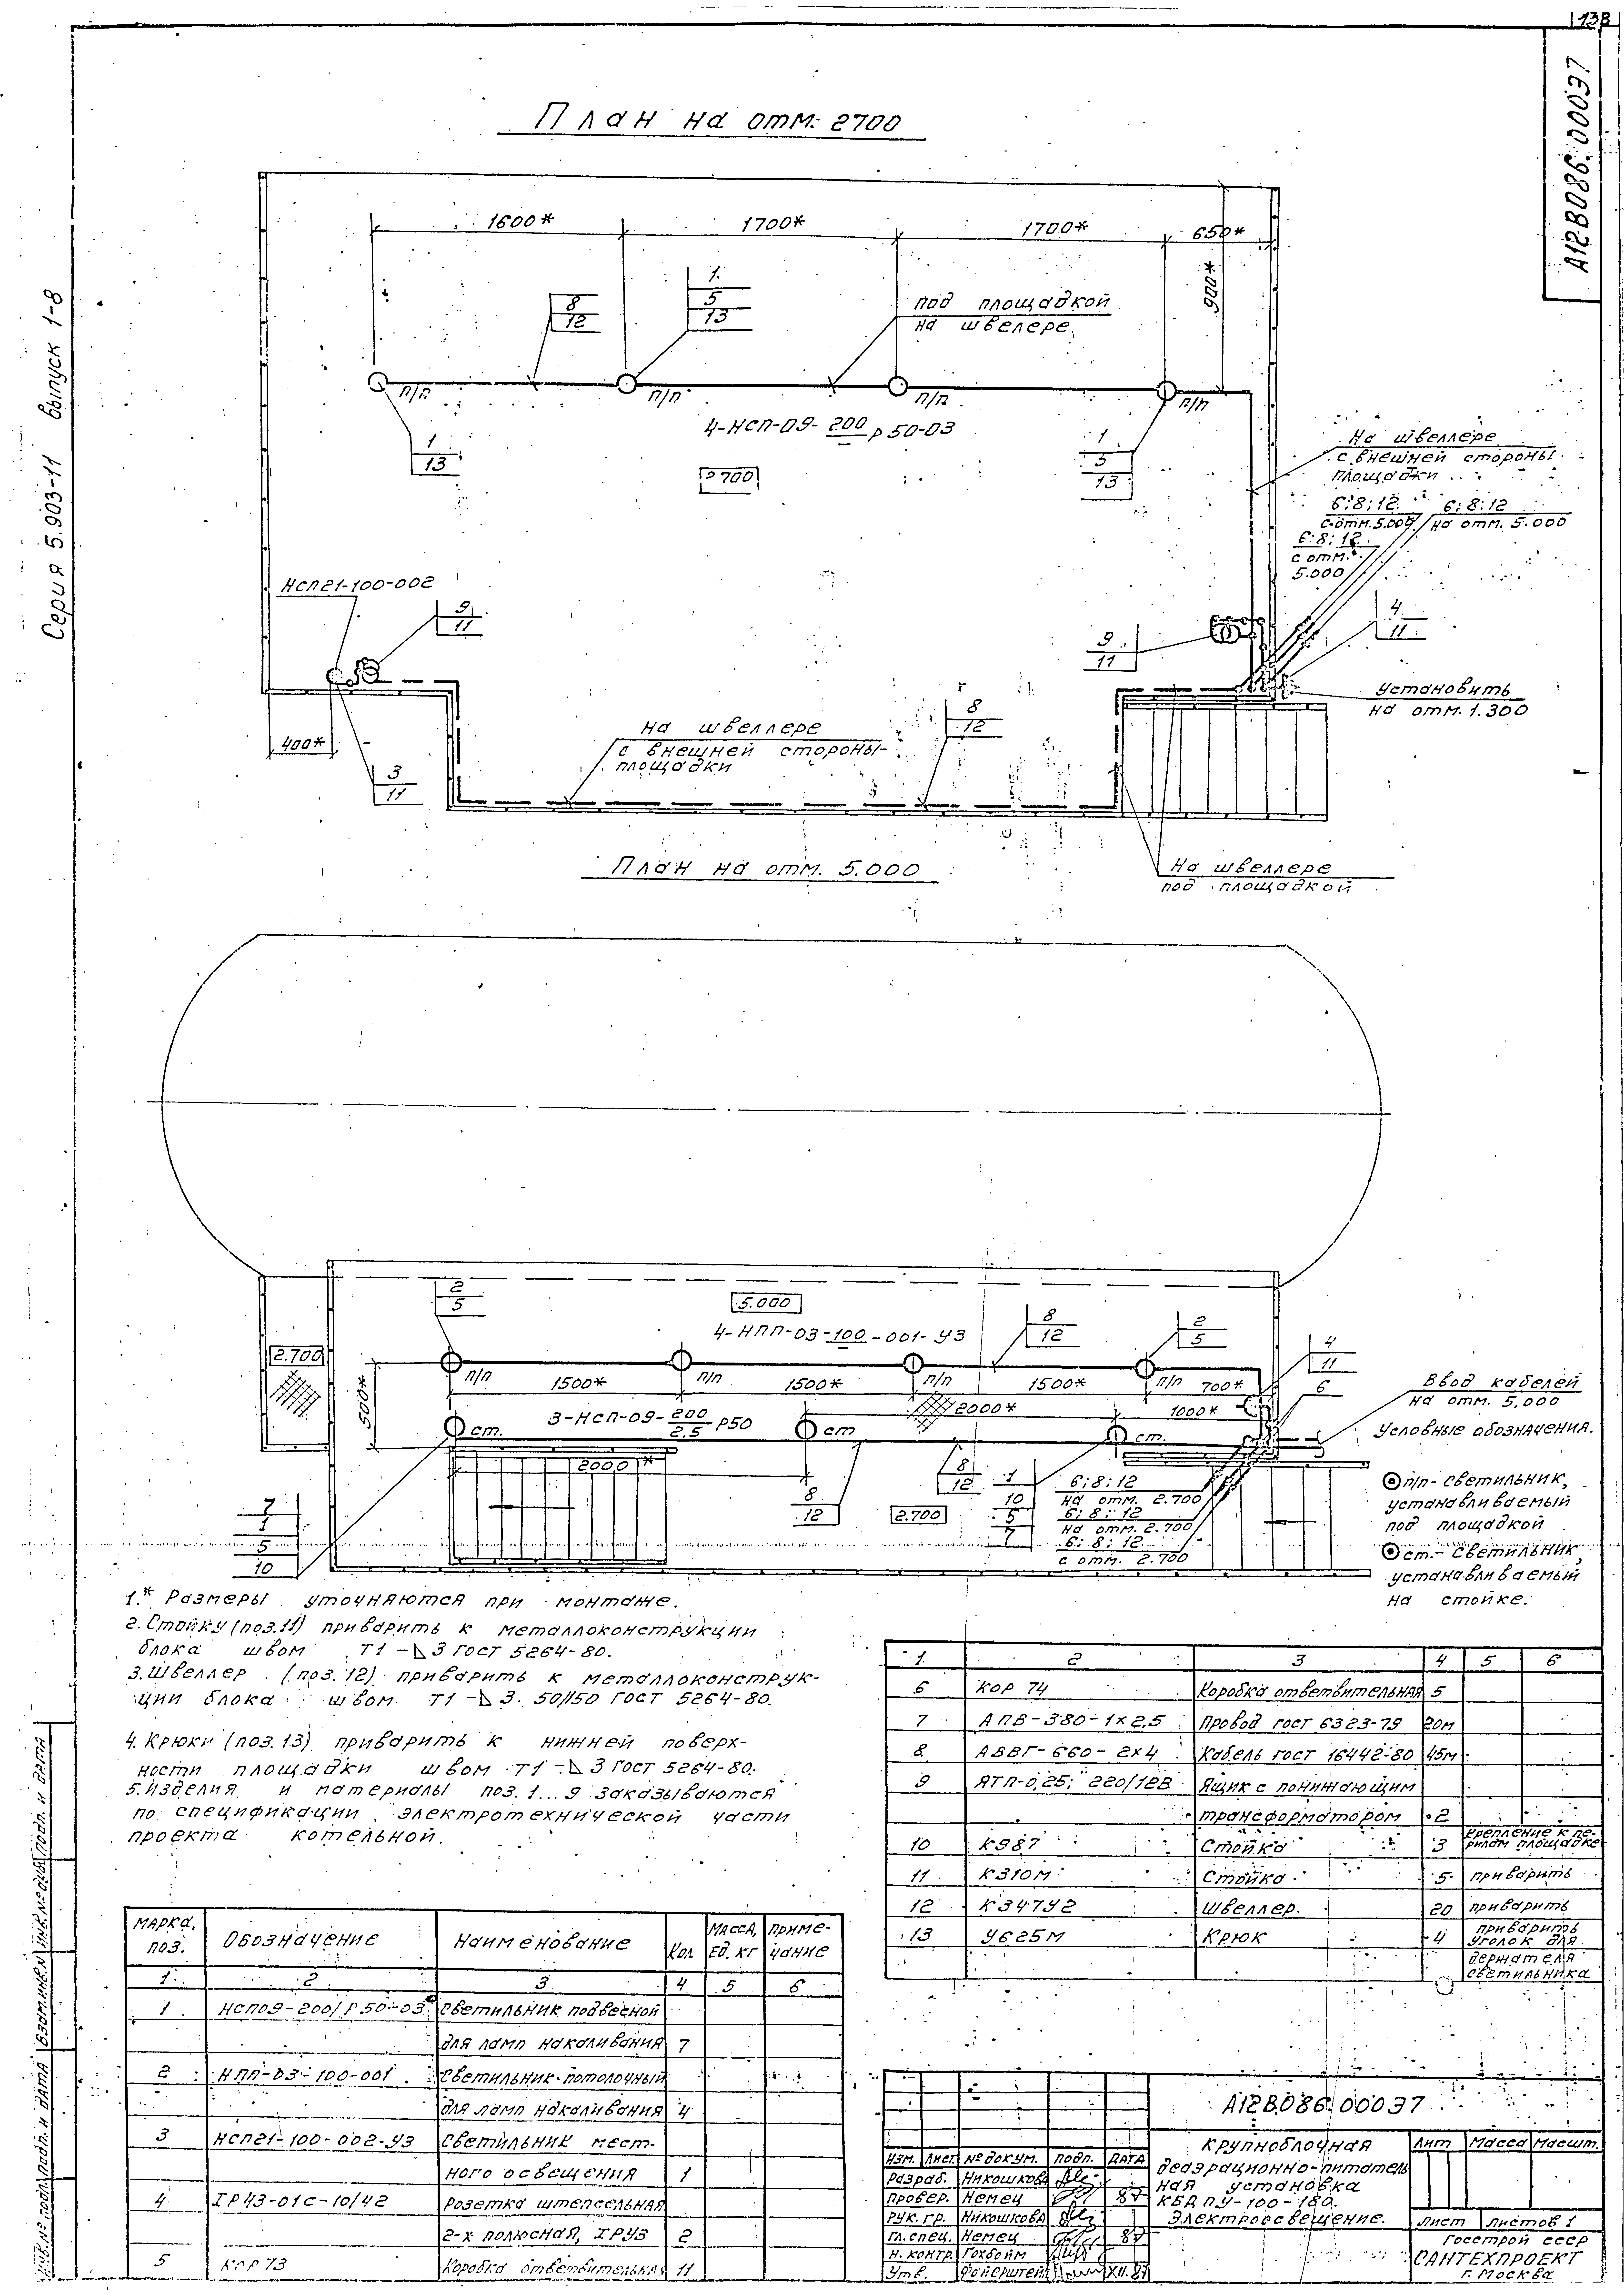 138
А12В086.00037
Серия 5.903-11 выпуск 1-8
План на отм. 2700
1600*
1700*
1700*
650*
900*
8
12
1
5
13
под площадкой
на швелере.
п/п
п/п
п/п
п/п
4-НСП-09-200 р 50-03
1
13
1
5
13
2700
На швеллере
с внешней стороны
площадки
6;8;12
с отм. 5.000
6;8;12
на отм. 5.000
6;8;12
с отм.
5.000
НСП21-100-002
9
11
9
11
4
11
Установить
на отм. 1.300
400*
3
11
на швеллере
с внешней стороны
площадки
8
12
На швеллере
под площадкой
План на отм. 5.000
2
5
5.000
4-НПП-03-100-001-У3
8
12
2
5
4
11
6
2.700
п/п
п/п
п/п
п/п
1500*
1500*
1500*
700*
500*
Ввод кабелей
на отм. 5,000
2000*
1000*
ст.
3-НСП-09-200/2,5 Р50
ст
ст.
2000*
8
12
8
12
2.700
1
10
5
7
6;8;12
на отм. 2.700
6;8;12
на отм. 2.700
6;8;12
с отм. 2.700
7
1
5
10
Условные обозначения.
п/п - светильник,
устанавливаемый
под площадкой
ст. - светильник,
устанавливаемый
на стойке.
1.* Размеры уточняются при монтаже.
2. Стойку (поз. 11) приварить к металлоконструкции
блока швом Т1-⊿3 ГОСТ 5264-80.
3. Швеллер (поз. 12) приварить к металлоконструк-
ции блока швом Т1-⊿3. 50/150 ГОСТ 5264-80.
4. Крюки (поз. 13) приварить к нижней поверх-
ности площадки швом Т1-⊿3 ГОСТ 5264-80.
5. Изделия и материалы поз. 1...9 заказываются
по спецификации электротехнической части
проекта котельной.
1 2 3 4 5 6
6 КОР 74 Коробка ответвительная 5
7 АПВ-380-1×2,5 Провод ГОСТ 6323-79 20м
8 АВВГ-660-2×4 Кабель ГОСТ 16442-80 45м
9 ЯТП-0,25; 220/12В Ящик с понижающим
трансформатором 2
10 К987 Стойка 3 крепление к пе-
рилам площадке
11 К310М Стойка 5 приварить
12 К347У2 Швеллер. 20 приварить
13 У625М Крюк 4 приварить
уголок для
держателя
светильника
Марка, поз. Обозначение Наименование Кол Масса, ед. кг Приме-чание
1 2 3 4 5 6
1 НСП09-200/Р50-03 Светильник подвесной
для ламп накаливания 7
2 НПП-03-100-001 Светильник потолочный
для ламп накаливания 4
3 НСП21-100-002-У3 Светильник мест-
ного освещения 1
4 IР43-01С-10/42 Розетка штепсельная
2-х полюсная, IРУ3 2
5 КОР 73 Коробка ответвительная 11
А12В086.00037
Крупноблочная
деаэрационно-питатель
ная установка
КБДПУ-100-180.
Электроосвещение.
Лит Масса Масшт.
Лист Листов 1
Изм. Лист № докум. Подп. Дата
Разраб. Никошкова
Провер. Немец 87
Рук. гр. Никошкова
Гл. спец. Немец 87
Н. контр. Гохбойм
Утв. Файерштейн XII.87
Госстрой СССР
САНТЕХПРОЕКТ
г. Москва
Инв. № подл. Подп. и дата Взам. инв. № Инв. № дубл. Подп. и дата